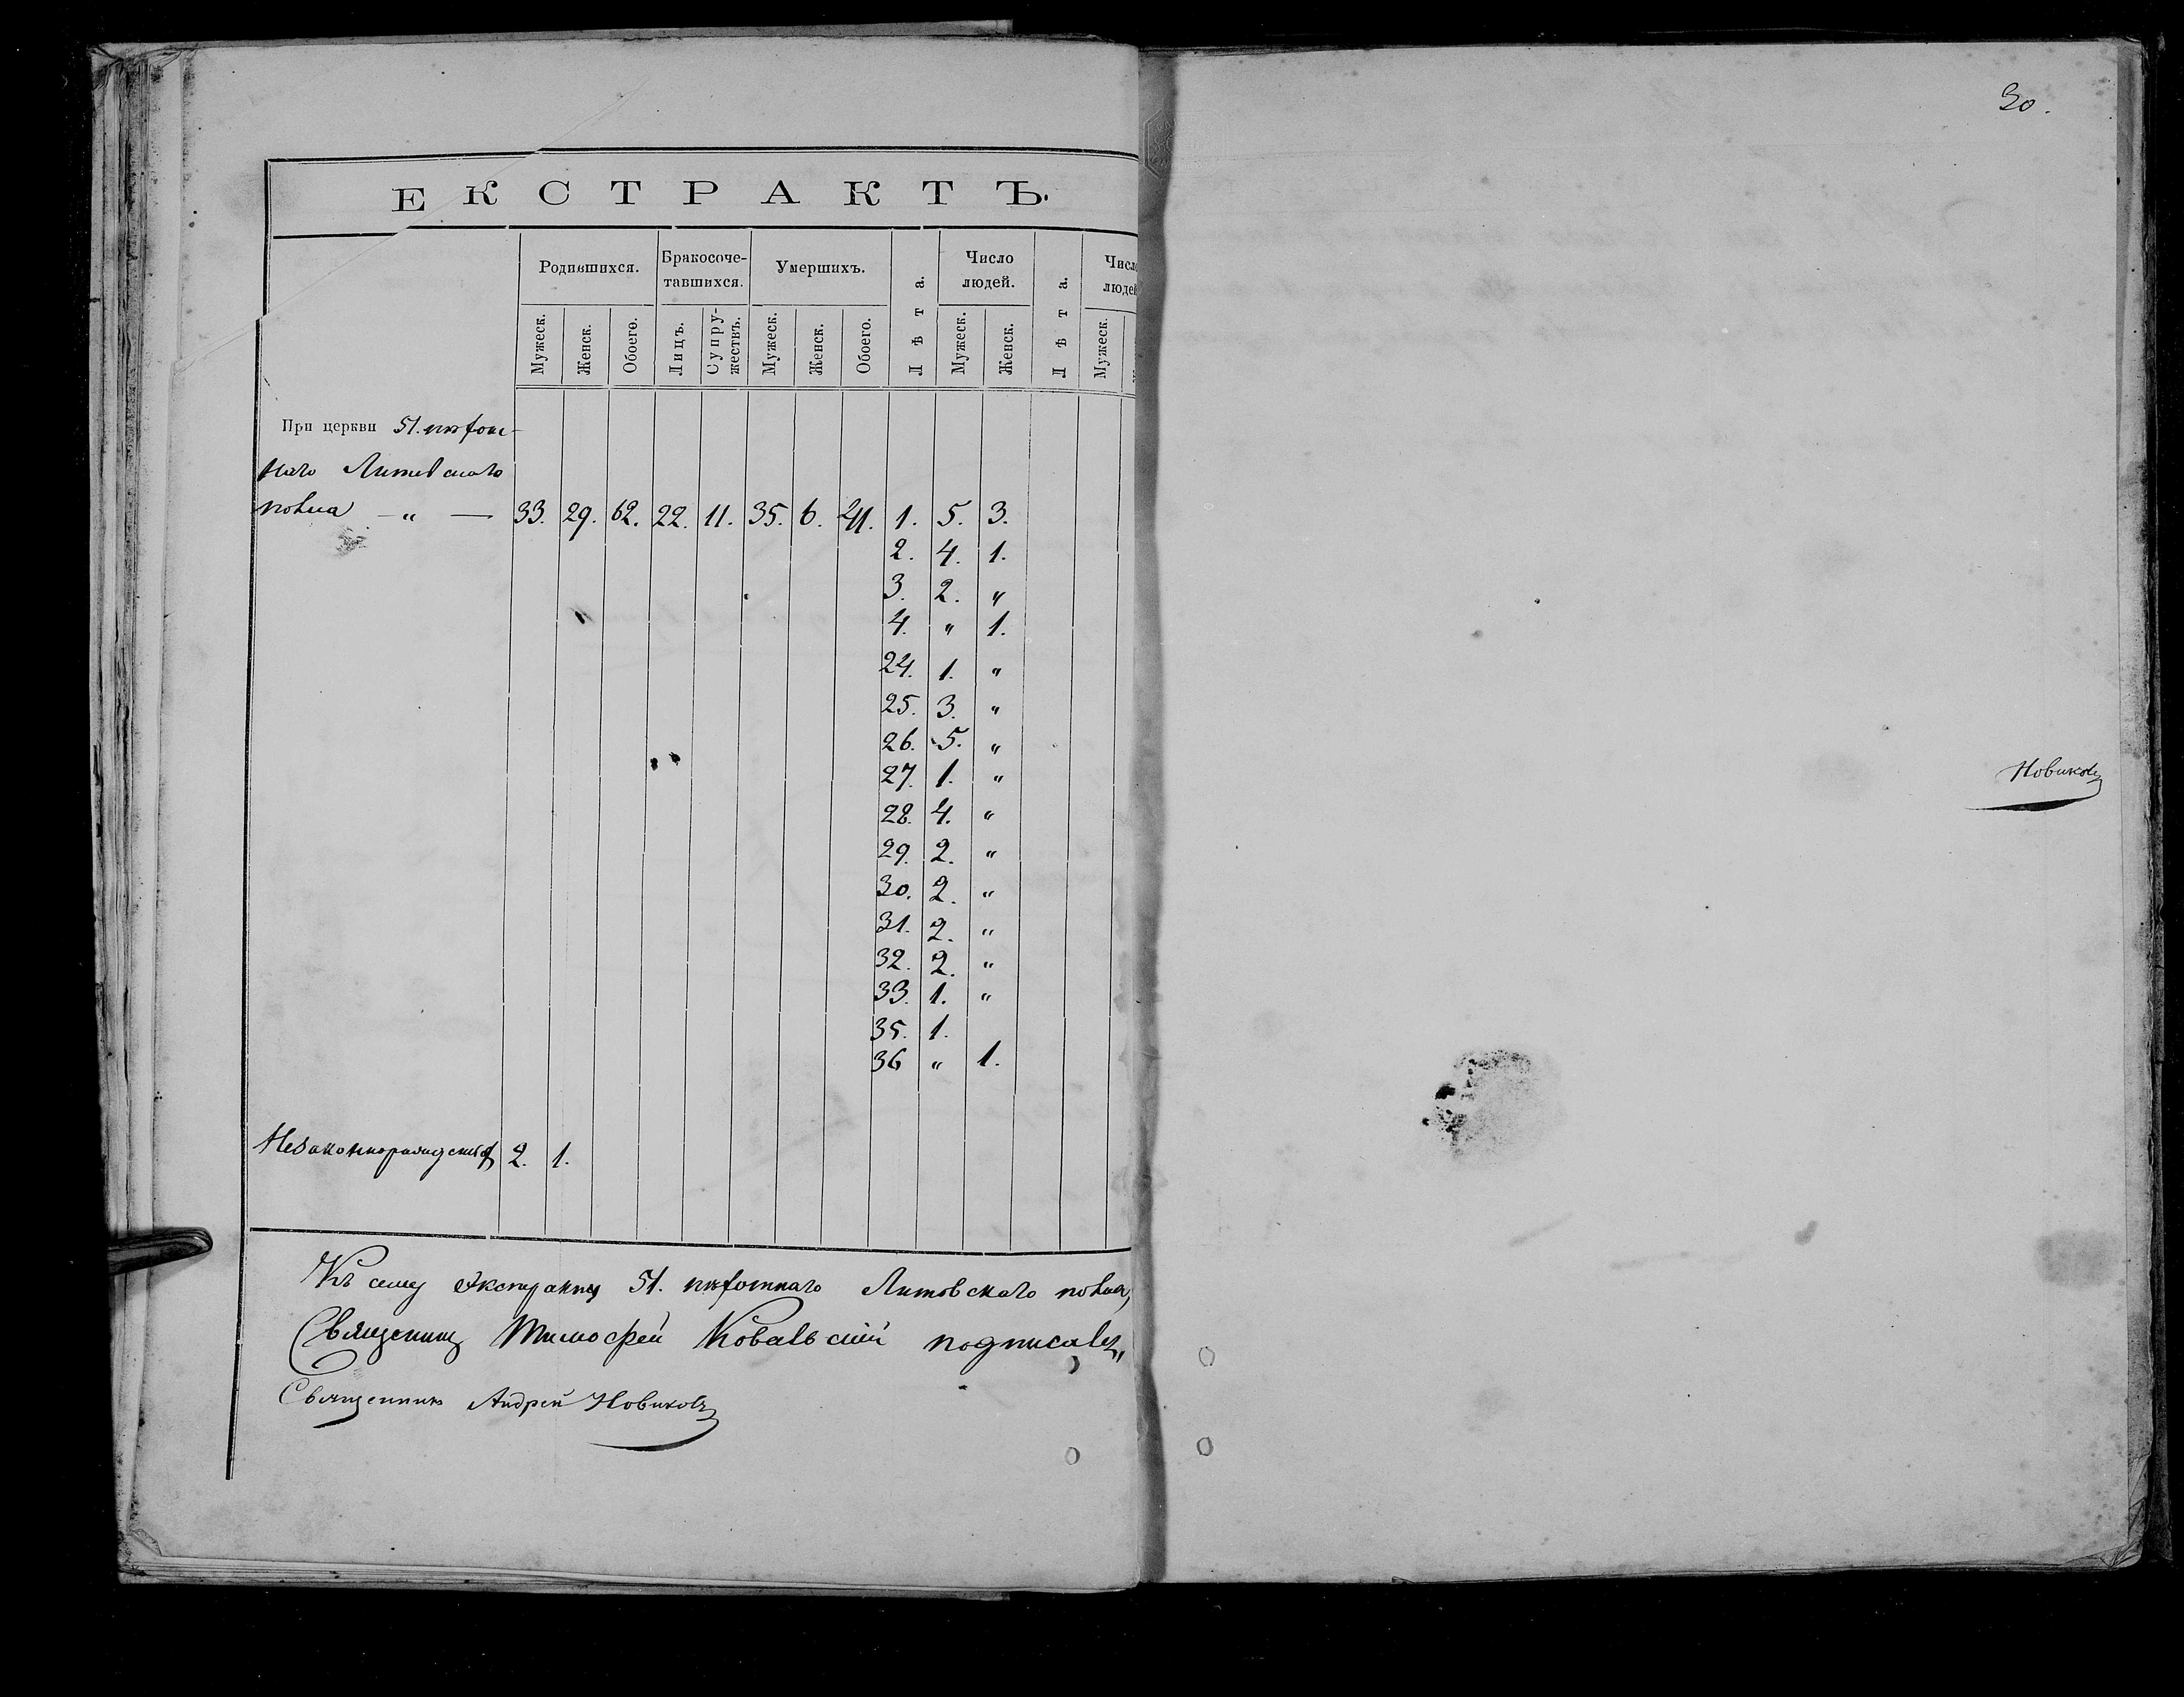 30.
ЕКСТРАКТЪ.
Родившихся. Бракосоче-тавшихся. Умершихъ. Лѣта. Число людей. Лѣта. Число людей
Мужеск. Женск. Обоего. Лицъ. Супру-жествъ. Мужеск. Женск. Обоего. Мужеск. Женск. Мужеск.
При церкви 51. пѣхот-
наго Литовскаго
полка — „ — 33. 29. 62. 22. 11. 35. 6. 41. 1. 5. 3.
2. 4. 1.
3. 2. „
4. „ 1.
24. 1. „
25. 3. „
26. 5. „
27. 1. „
28. 4. „
29. 2. „
30. 2. „
31. 2. „
32. 2. „
33. 1. „
35. 1.
36 „ 1.
Незаконнорожденныхъ 2. 1.
Къ сему экстракту 51. пѣхотнаго Литовскаго полка,
Священникъ Тимофей Ковальскій подписалъ,
Священникъ Андрей Новиковъ
Новиковъ